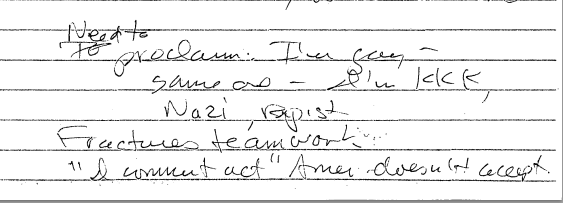 Need to
to
proclaim: I'm gay -
same as - I'm KKK,
Nazi, rapist
Fractures teamwork.
"I commit act" Amer doesn't accept.